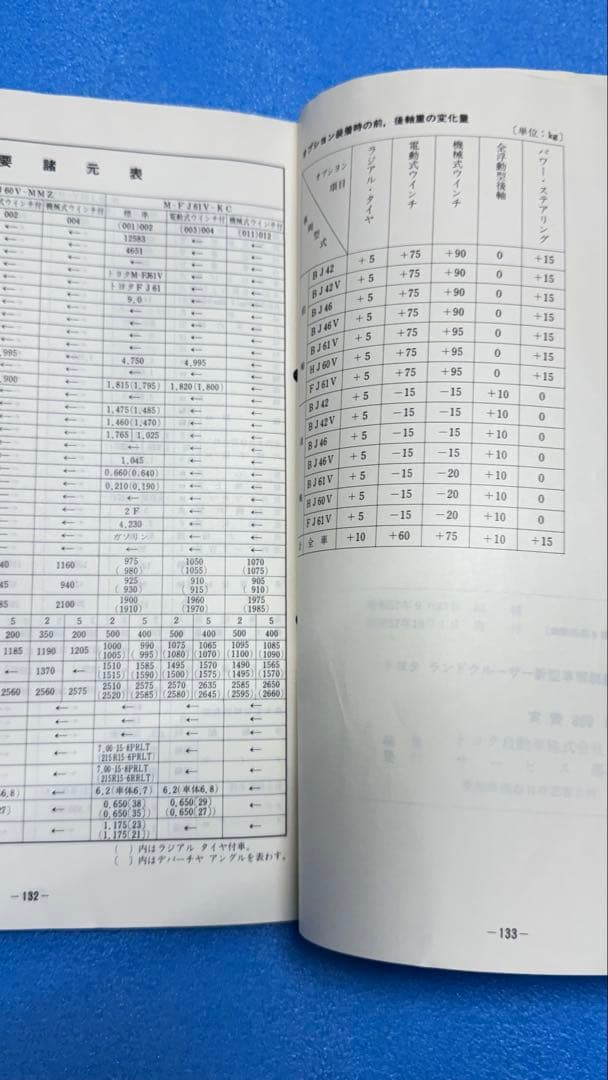 要 諸 元 表
J60V-MMZ M-FJ61V-KC
式ウインチ付 機械式ウインチ付 標準 電動式ウインチ付 機械式ウインチ付
002 004 (001)002 (003)004 (011)012
← ← 12583 ← ←
← ← 4651 ← ←
← ← ← ← ←
← ← トヨタM-FJ61V ← ←
← ← トヨタFJ61 ← ←
← ← 9.0 ← ←
.995 ← 4.750 4.995 ←
.900 ← 1.815(1.795) 1.820(1.800) ←
← ← 1.475(1.485) ← ←
← ← 1.460(1.470) ← ←
← ← 1.765|1.025 ← ←
← ← ← ← ←
← ← 1.045 ← ←
← ← 0.660(0.640) ← ←
← ← 0.210(0.190) ← ←
← ← ← ← ←
← ← 2F ← ←
← ← 4.230 ← ←
← ← ガソリン ← ←
40 1160 975 (980) 1050 (1055) 1070 (1075)
45 940 925 (930) 910 (915) 905 (910)
85 2100 1900 (1910) 1960 (1970) 1975 (1985)
5 2 5 2 5 2 5 2 5
200 350 200 500 400 500 400 500 400
1185 1190 1205 1000 (1005) 990 (995) 1075 (1080) 1065 (1070) 1095 (1100) 1085 (1090)
← 1370 ← 1510 (1515) 1585 (1590) 1495 (1500) 1570 (1575) 1490 (1495) 1565 (1570)
2560 2560 2575 2510 (2520) 2575 (2585) 2570 (2580) 2635 (2645) 2585 (2595) 2650 (2660)
← ← ← ← ←
← ← ← ← ←
← ← 7.00-15-6PRLT (215R15-6PRLT) ← ←
← ← 7.00-15-8PRLT (215R15-6RRLT) ← ←
6.8) ← 6.2(車体6.7) 6.2(車体6.8) ←
27] ← 0.650[38] (0.650[35]) 0.650[29] (0.650[27]) ←
← ← 1.175[23] (1.175[21]) ← ←
( )内はラジアル タイヤ付車。
[ ]内はデパーチャ アングルを表わす。
—132—
オプション装備時の前,後軸重の変化量
〔単位:kg〕
オプション項目 車両型式 ラジアル・タイヤ 電動式ウインチ 機械式ウインチ 全浮動型後軸 パワー・ステアリング
BJ42 +5 +75 +90 0 +15
BJ42V +5 +75 +90 0 +15
BJ46 +5 +75 +90 0 +15
BJ46V +5 +75 +90 0 +15
BJ61V +5 +75 +95 0 +15
HJ60V +5 +75 +95 0 +15
FJ61V +5 +75 +95 0 +15
BJ42 +5 −15 −15 +10 0
BJ42V +5 −15 −15 +10 0
BJ46 +5 −15 −15 +10 0
BJ46V +5 −15 −15 +10 0
BJ61V +5 −15 −20 +10 0
HJ60V +5 −15 −20 +10 0
FJ61V +5 −15 −20 +10 0
計 全車 +10 +60 +75 +10 +15
—133—